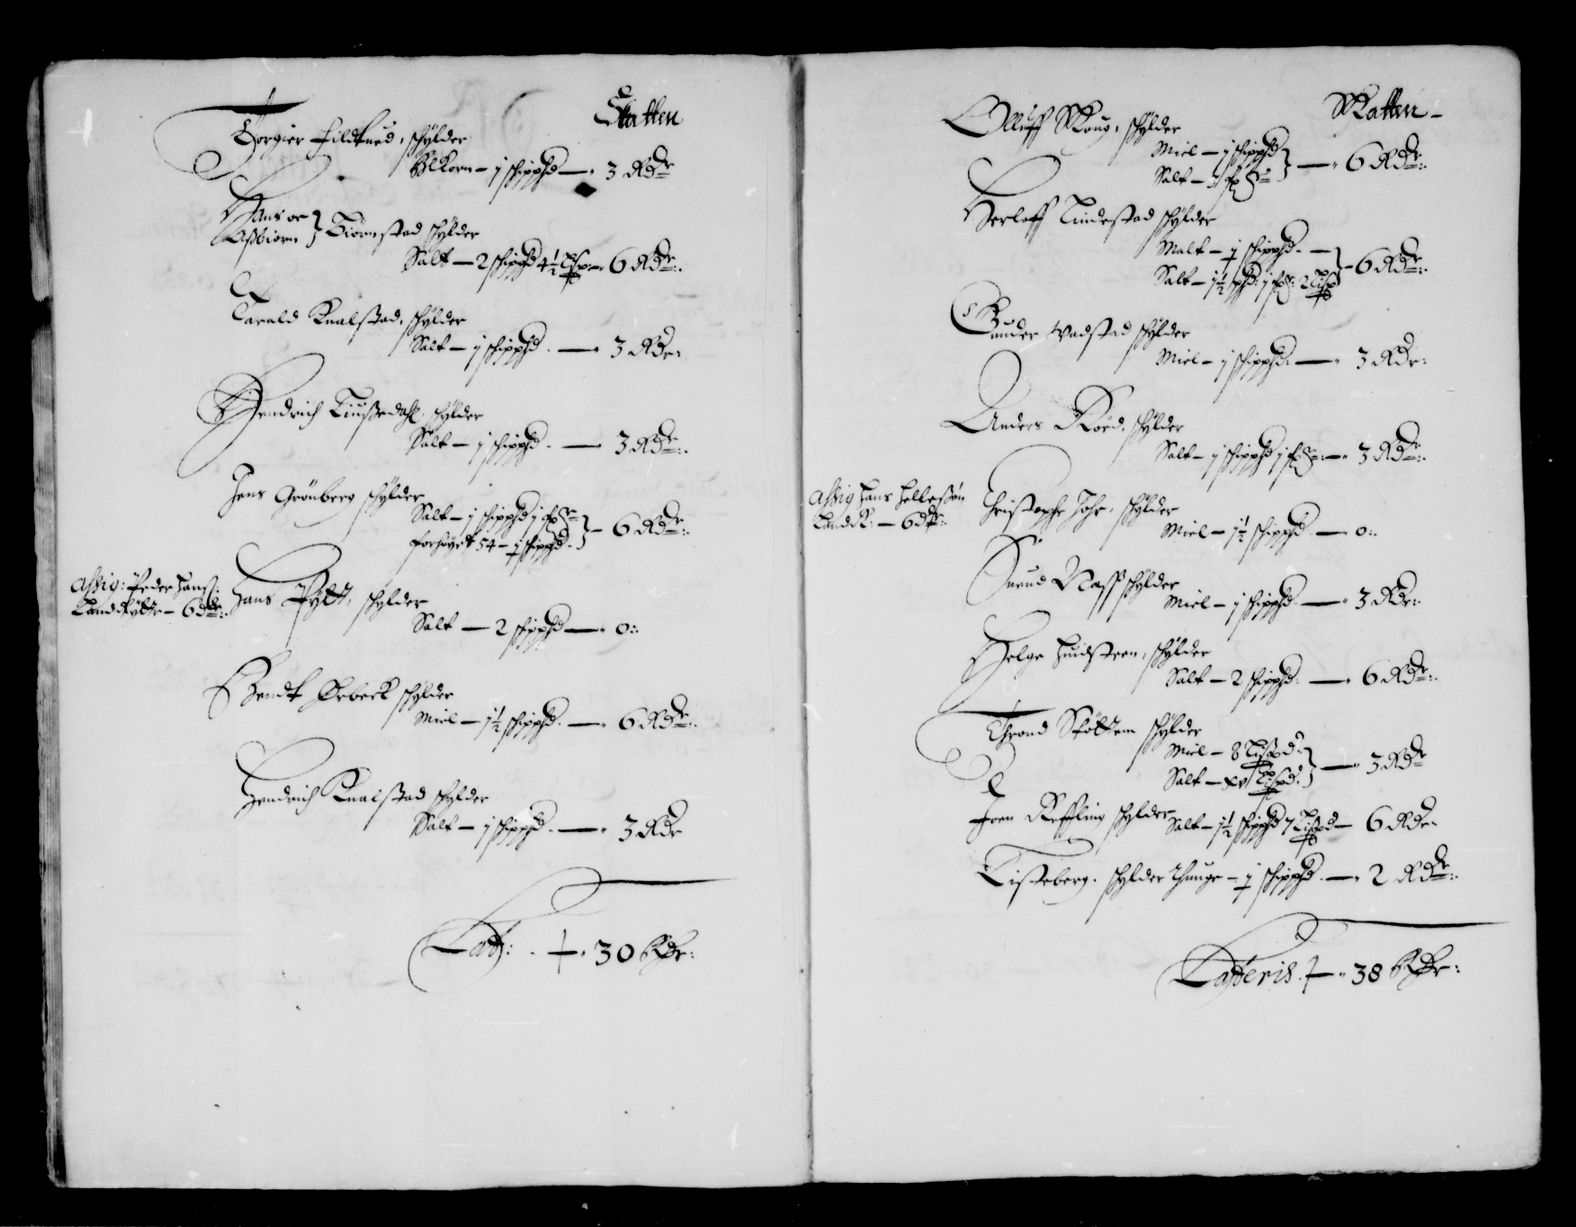 Skatten
Torgier Fildtued, schylder
Bÿlkorn — j schippd — 3 Rdr
Hans oc
Asbiorn } Tiørnstad schylder
Salt — 2 schippd 4½ Lisp — 6 Rdr:.
Tarald Knalstad, schylder
Salt — j schippd. — 3 Rdr.
Hendrich Tiußedahl, schylder
Salt — j schippd. — 3 Rdr:.
Jens Grönberg schylder
Salt — j schippd j fr
forhöyet 54 — schippd. } — 6 Rdr:.
Aßig: Peder Hanß:
Landskyltt — 6 dr:.
Hans Pylt, schylder
Salt — 2 schippd — 0:.
Bendt Ørbeck schylder
Miel — j½ schippd. — 6 Rdr:.
Hendrich Knalstad schylder
Salt — j schippd. — 3 Rdr
Lat: . — 30 Rdr:
Skatten —
Olluff Skoug, schylder
Miel — j schippd
Salt — } — 6 Rdr:.
Herloff Tindestad schylder
Malt — schippd. —
Salt — j½ schpd: j fr: 2 Lisp } — 6 Rdr:.
Gunder Wadstad schylder
Miel — j schippd. — 3 Rdr:
Anders Roed, schylder
Salt — j schippd j fr — 3 Rdr:.
Aßig Hans Hellessøn
Landsk: — 6 dr:.
Christopher Tohr, schylder
Miel — j½ schippd — 0:.
Snud Naß schylder
Miel — j schippd. — 3 Rdr:.
Helge Huidsteen, schylder
Salt — 2 schippd: — 6 Rdr:.
Thrond Stölttem schylder
Miel — 8 Lispd
Salt — xv Lispd: } — 3 Rdr
Joen Reffling schylder Salt — j½ schippd 7 Lispd — 6 Rdr.
Tisteberg, schylder Thunge — schippd. — 2 Rdr:.
Lateris — 38 Rdr: